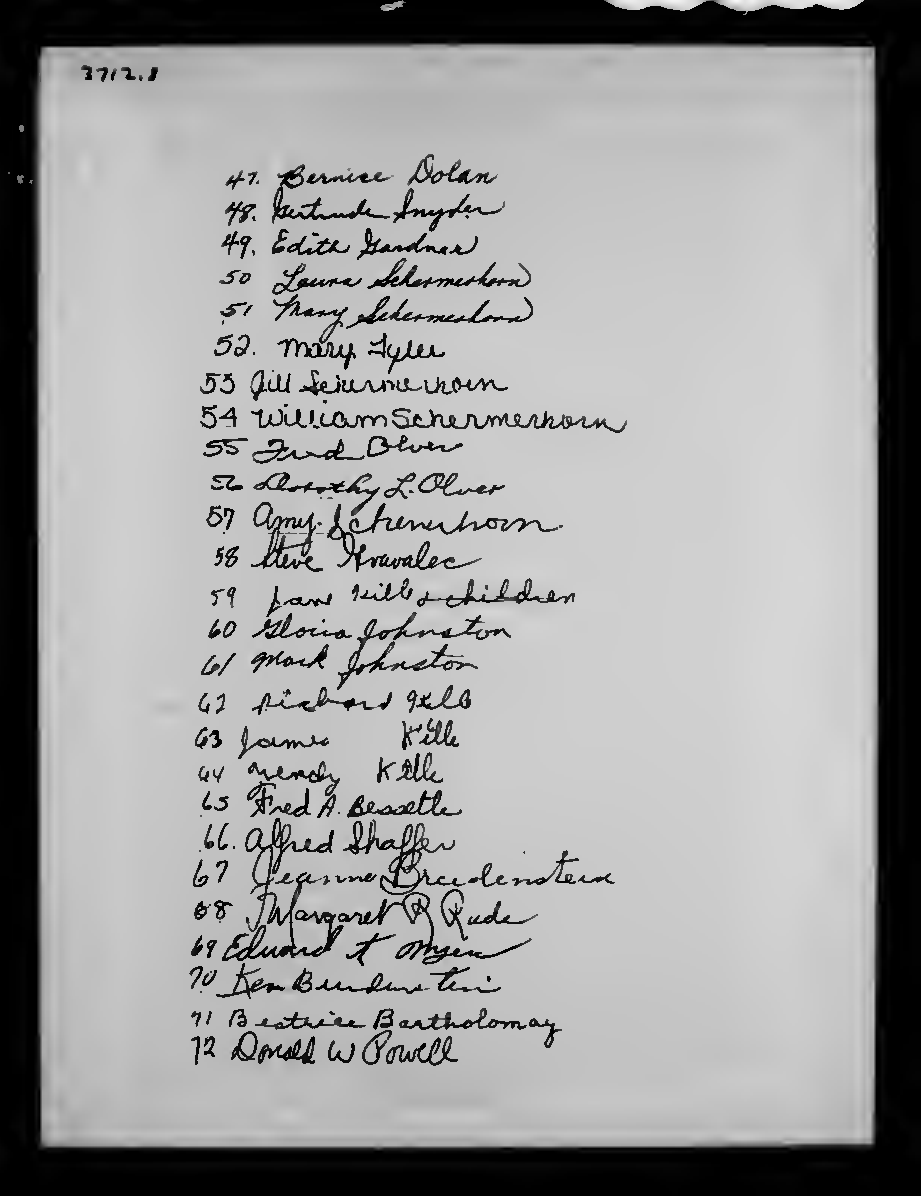 3712.1
47. Bernice Dolan
48. Gertrude Snyder
49. Edith Gardner
50 Laura Schermerhorn
51 Mary Schermerhorn
52. Mary Tyler
53 Jill Schermerhorn
54 William Schermerhorn
55 Fred Olver
56 Dorothy L. Olver
57 Amy Schermerhorn
58 Steve
59 Jane Kille & children
60 Gloria Johnston
61 Mark Johnston
62 Richard
63 James Kille
64 Wendy Kille
65 Fred A. Bessette
66. Alfred Shaffer
67 Jeanne Breidenstein
68 Margaret R Rude
69 Edward
70 Ken
71 Beatrice Bartholomay
72 Donald W Powell